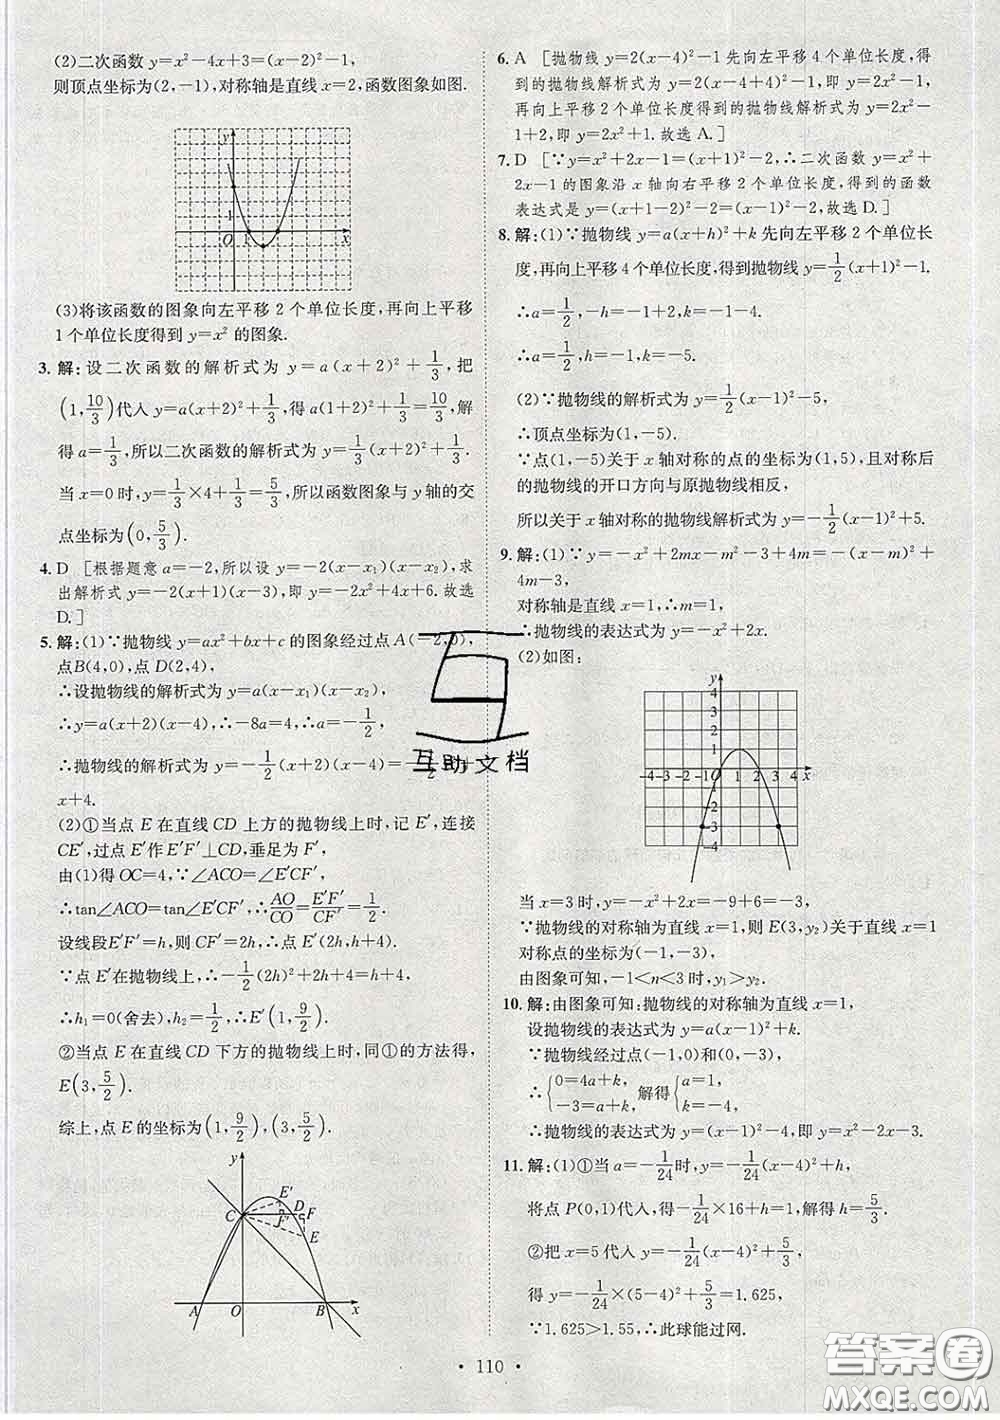 (2)二次函数 y=x²-4x+3=(x-2)²-1,
则顶点坐标为(2,-1),对称轴是直线 x=2,函数图象如图.
y
1
O 1 x
(3)将该函数的图象向左平移 2 个单位长度,再向上平移
1 个单位长度得到 y=x² 的图象.
3. 解:设二次函数的解析式为 y=a(x+2)²+1/3,把
(1,10/3)代入 y=a(x+2)²+1/3,得 a(1+2)²+1/3=10/3,解
得 a=1/3,所以二次函数的解析式为 y=1/3(x+2)²+1/3.
当 x=0 时,y=1/3×4+1/3=5/3,所以函数图象与 y 轴的交
点坐标为(0,5/3).
4. D [根据题意 a=-2,所以设 y=-2(x-x₁)(x-x₂),求
出解析式 y=-2(x+1)(x-3),即 y=-2x²+4x+6.故选
D.]
5. 解:(1)∵抛物线 y=ax²+bx+c 的图象经过点 A(-2,0),
点B(4,0),点 D(2,4),
∴设抛物线的解析式为 y=a(x-x₁)(x-x₂),
∴y=a(x+2)(x-4),∴-8a=4,∴a=-1/2,
∴抛物线的解析式为 y=-1/2(x+2)(x-4)=-1/2x²+
x+4.
(2)①当点 E 在直线 CD 上方的抛物线上时,记 E′,连接
CE′,过点 E′作 E′F′⊥CD,垂足为 F′,
由(1)得 OC=4,∵∠ACO=∠E′CF′,
∴tan∠ACO=tan∠E′CF′,∴AO/CO=E′F′/CF′=1/2.
设线段E′F′=h,则 CF′=2h,∴点 E′(2h,h+4).
∵点 E′在抛物线上,∴-1/2(2h)²+2h+4=h+4,
∴h₁=0(舍去),h₂=1/2,∴E′(1,9/2).
②当点 E 在直线 CD 下方的抛物线上时,同①的方法得,
E(3,5/2).
综上,点 E 的坐标为(1,9/2),(3,5/2).
y
E′
C F′ D F
E
A O B x
6. A [抛物线 y=2(x-4)²-1 先向左平移 4 个单位长度,得
到的抛物线解析式为 y=2(x-4+4)²-1,即 y=2x²-1,
再向上平移 2 个单位长度得到的抛物线解析式为 y=2x²-
1+2,即 y=2x²+1.故选 A.]
7. D [∵y=x²+2x-1=(x+1)²-2,∴二次函数 y=x²+
2x-1 的图象沿 x 轴向右平移 2 个单位长度,得到的函数
表达式是 y=(x+1-2)²-2=(x-1)²-2,故选 D.]
8. 解:(1)∵抛物线 y=a(x+h)²+k 先向左平移 2 个单位长
度,再向上平移 4 个单位长度,得到抛物线 y=1/2(x+1)²-1.
∴a=1/2,-h=-1+2,k=-1-4.
∴a=1/2,h=-1,k=-5.
(2)∵抛物线的解析式为 y=1/2(x-1)²-5,
∴顶点坐标为(1,-5).
∵点(1,-5)关于 x 轴对称的点的坐标为(1,5),且对称后
的抛物线的开口方向与原抛物线相反,
所以关于 x 轴对称的抛物线解析式为 y=-1/2(x-1)²+5.
9. 解:(1)∵y=-x²+2mx-m²-3+4m=-(x-m)²+
4m-3,
对称轴是直线 x=1,∴m=1,
∴抛物线的表达式为 y=-x²+2x.
(2)如图:
y
4
3
2
1
-4-3-2-1 O 1 2 3 4 x
-1
-2
-3
-4
当 x=3 时,y=-x²+2x=-9+6=-3,
∵抛物线的对称轴为直线 x=1,则 E(3,y₂)关于直线 x=1
对称点的坐标为(-1,-3),
由图象可知,-1<n<3 时,y₁>y₂.
10. 解:由图象可知:抛物线的对称轴为直线 x=1,
设抛物线的表达式为 y=a(x-1)²+k.
∵抛物线经过点(-1,0)和(0,-3),
∴{0=4a+k, -3=a+k, 解得{a=1, k=-4.
∴抛物线的表达式为 y=(x-1)²-4,即 y=x²-2x-3.
11. 解:(1)①当 a=-1/24时,y=-1/24(x-4)²+h,
将点 P(0,1)代入,得-1/24×16+h=1,解得 h=5/3.
②把 x=5 代入 y=-1/24(x-4)²+5/3,
得 y=-1/24×(5-4)²+5/3=1.625,
∵1.625>1.55,∴此球能过网.
• 110 •
互助文档
答案圈
MXQE.COM